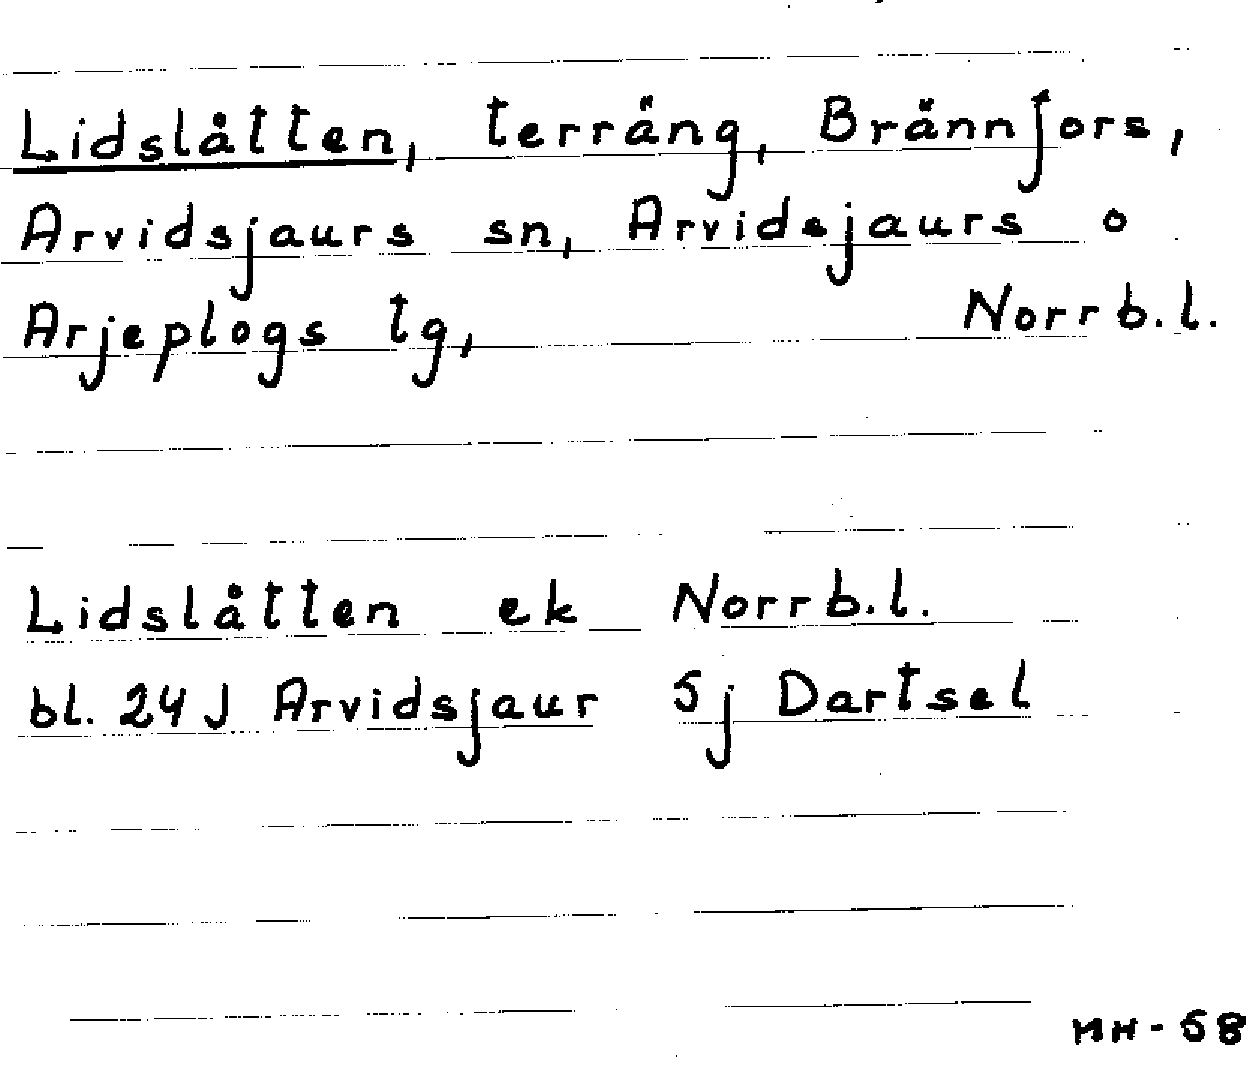 Lidslåtten, terräng, Brännfors,
Arvidsjaurs sn, Arvidsjaurs o
Arjeplogs tg, Norrb.l.
Lidslåtten ek Norrb.l.
bl. 24 J Arvidsjaur 5j Dartsel
MH-68